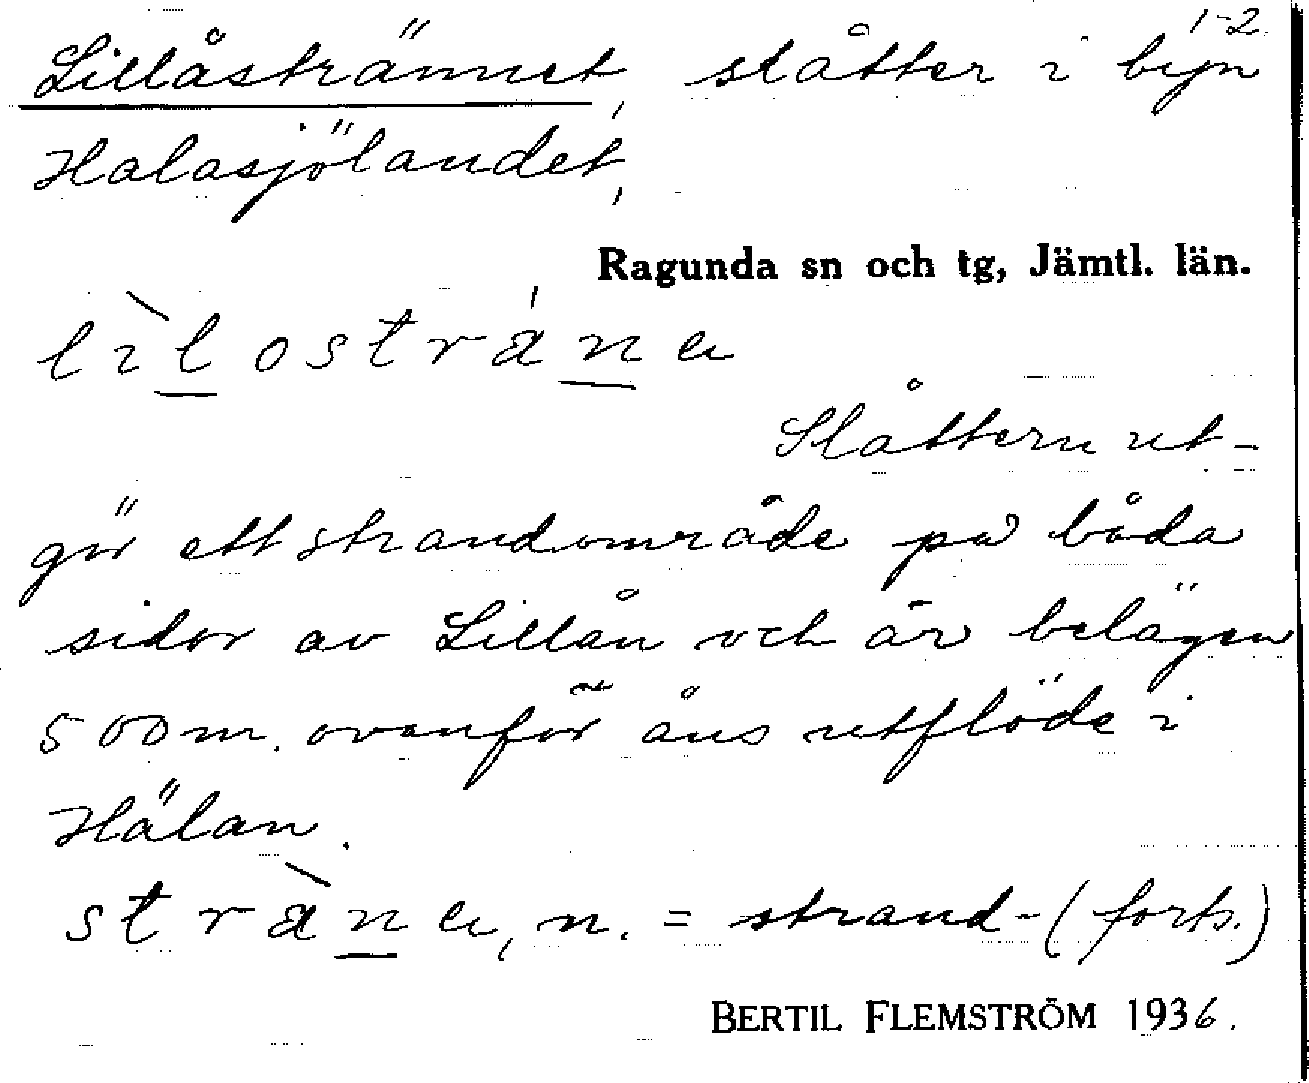 1-2.
Lillåstrännet, slåtter i byn
Halasjölandet,
Ragunda sn och tg, Jämtl. län.
Slåttern ut-
gör ett strandområde på båda
sidor av Lillån och är belägen
500 m. ovanför åns utflöde i
Hälan.
n. = strand- (forts.)
BERTIL FLEMSTRÖM 1936.